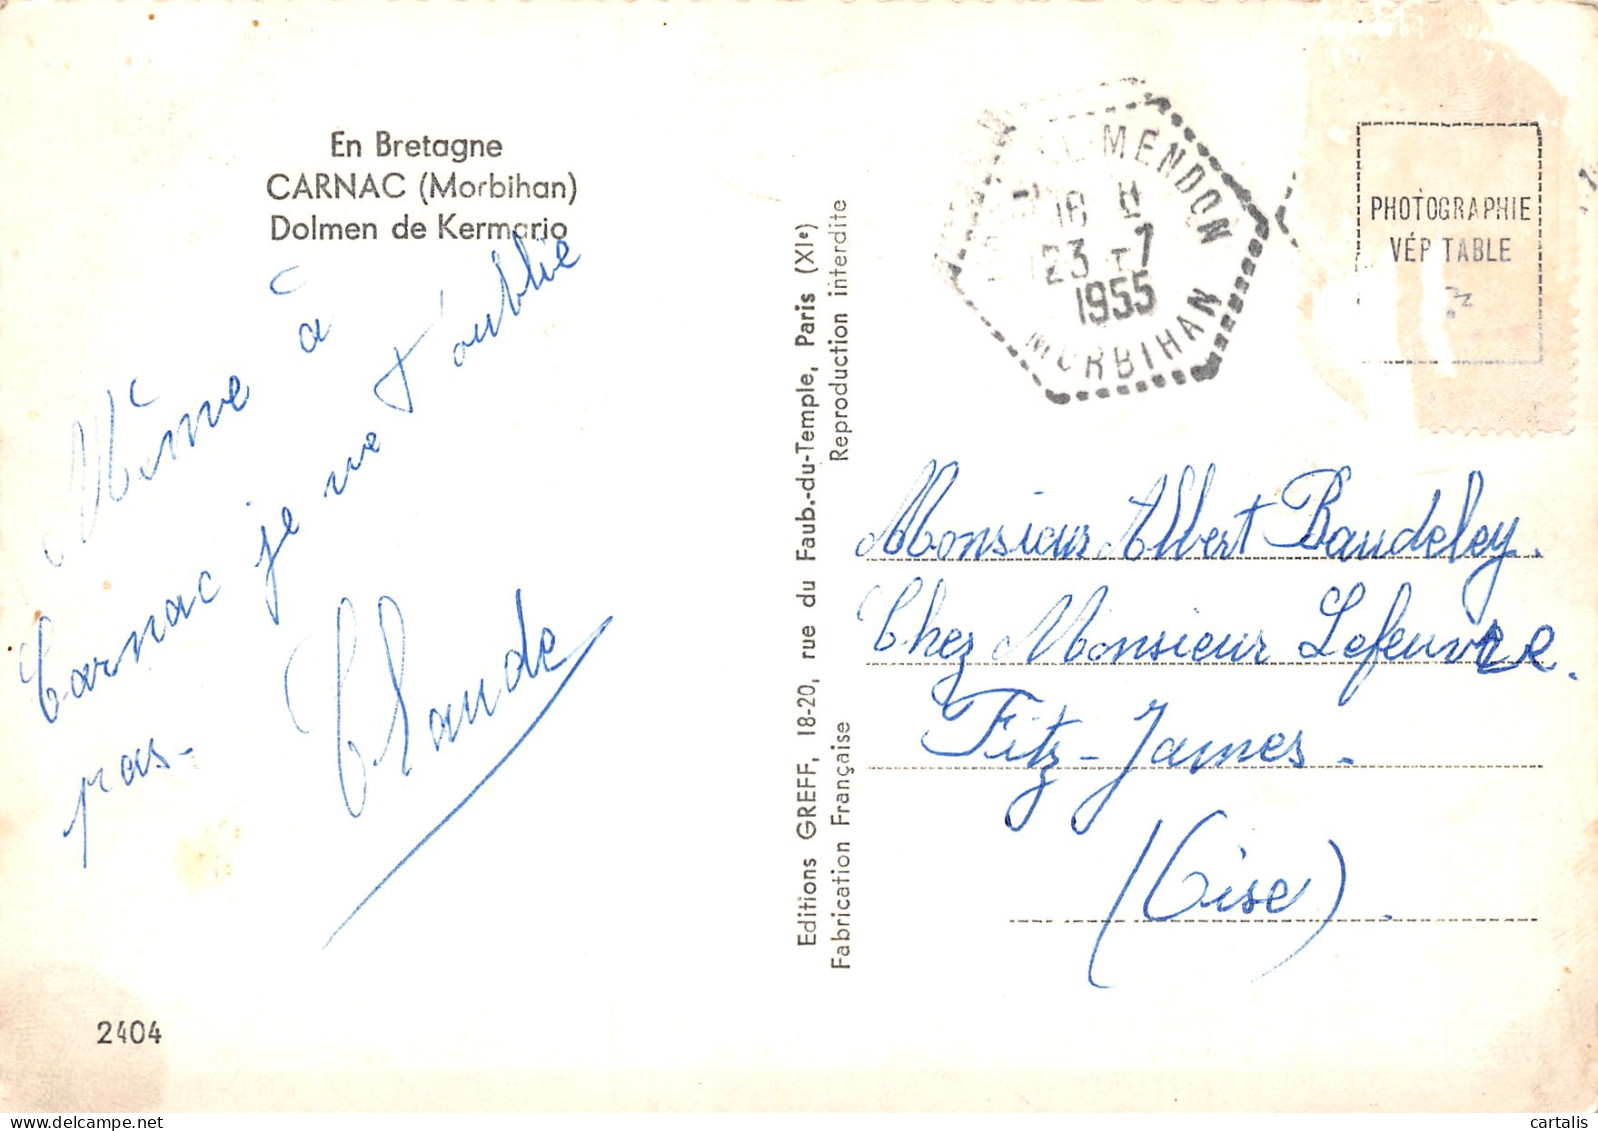 En Bretagne
CARNAC (Morbihan)
Dolmen de Kermario
Même à
Carnac je ne t'oublie
pas-
Claude
2404
Editions GREFF, 18-20, rue du Faub.-du-Temple, Paris (XIe)
Fabrication Française
Reproduction interdite
MENDON
18 H
23 -7
1955
MORBIHAN
PHOTOGRAPHIE
VÉP TABLE
Monsieur Albert Baudeley.
Chez Monsieur Lefeuvre.
Fitz-James.
(Oise).
cartalis